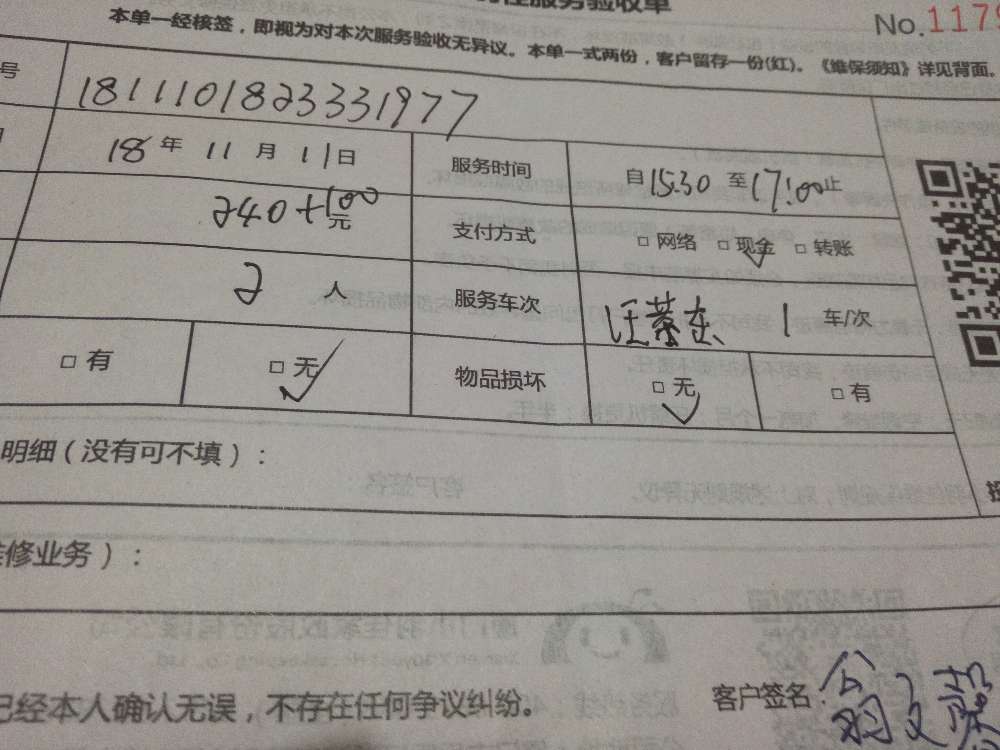 性服务验收单
No.1179
本单一经核签，即视为对本次服务验收无异议。本单一式两份，客户留存一份(红)。《维保须知》详见背面。
号 1811101823331977
18年11月11日 服务时间 自15:30至17:00止
240+100元 支付方式 □网络 □现金 □转账
2人 服务车次 汪荣东 1车/次
□有 □无 物品损坏 □无 □有
明细（没有可不填）：
修业务）：
已经本人确认无误，不存在任何争议纠纷。 客户签名：翁文